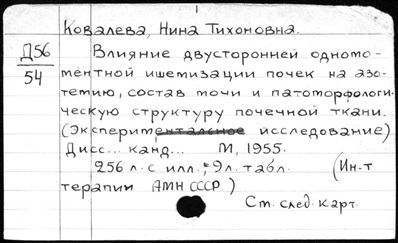 Ковалева, Нина Тихоновна.
Д56
54
Влияние двусторонней одномо-
ментной ишемизации почек на азо-
темию, состав мочи и патоморфологи-
ческую структуру почечной ткани.
(Экспериментальное исследование)
Дисс... канд... М, 1955.
256 л. с илл.; 9 л. табл. (Ин-т
терапии АМН СССР)
См. след. карт.